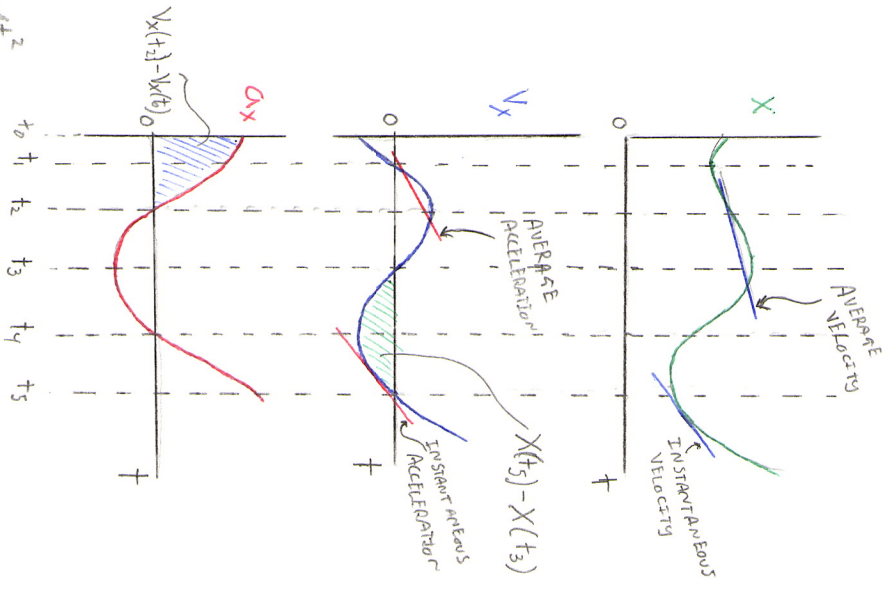 X
AVERAGE
VELOCITY
INSTANTANEOUS
VELOCITY
0
t
Vx
AVERAGE
ACCELERATION
X(t5)-X(t3)
0
t
INSTANTANEOUS
ACCELERATION
ax
Vx(t2)-Vx(t)
0
t
t0 t1 t2 t3 t4 t5